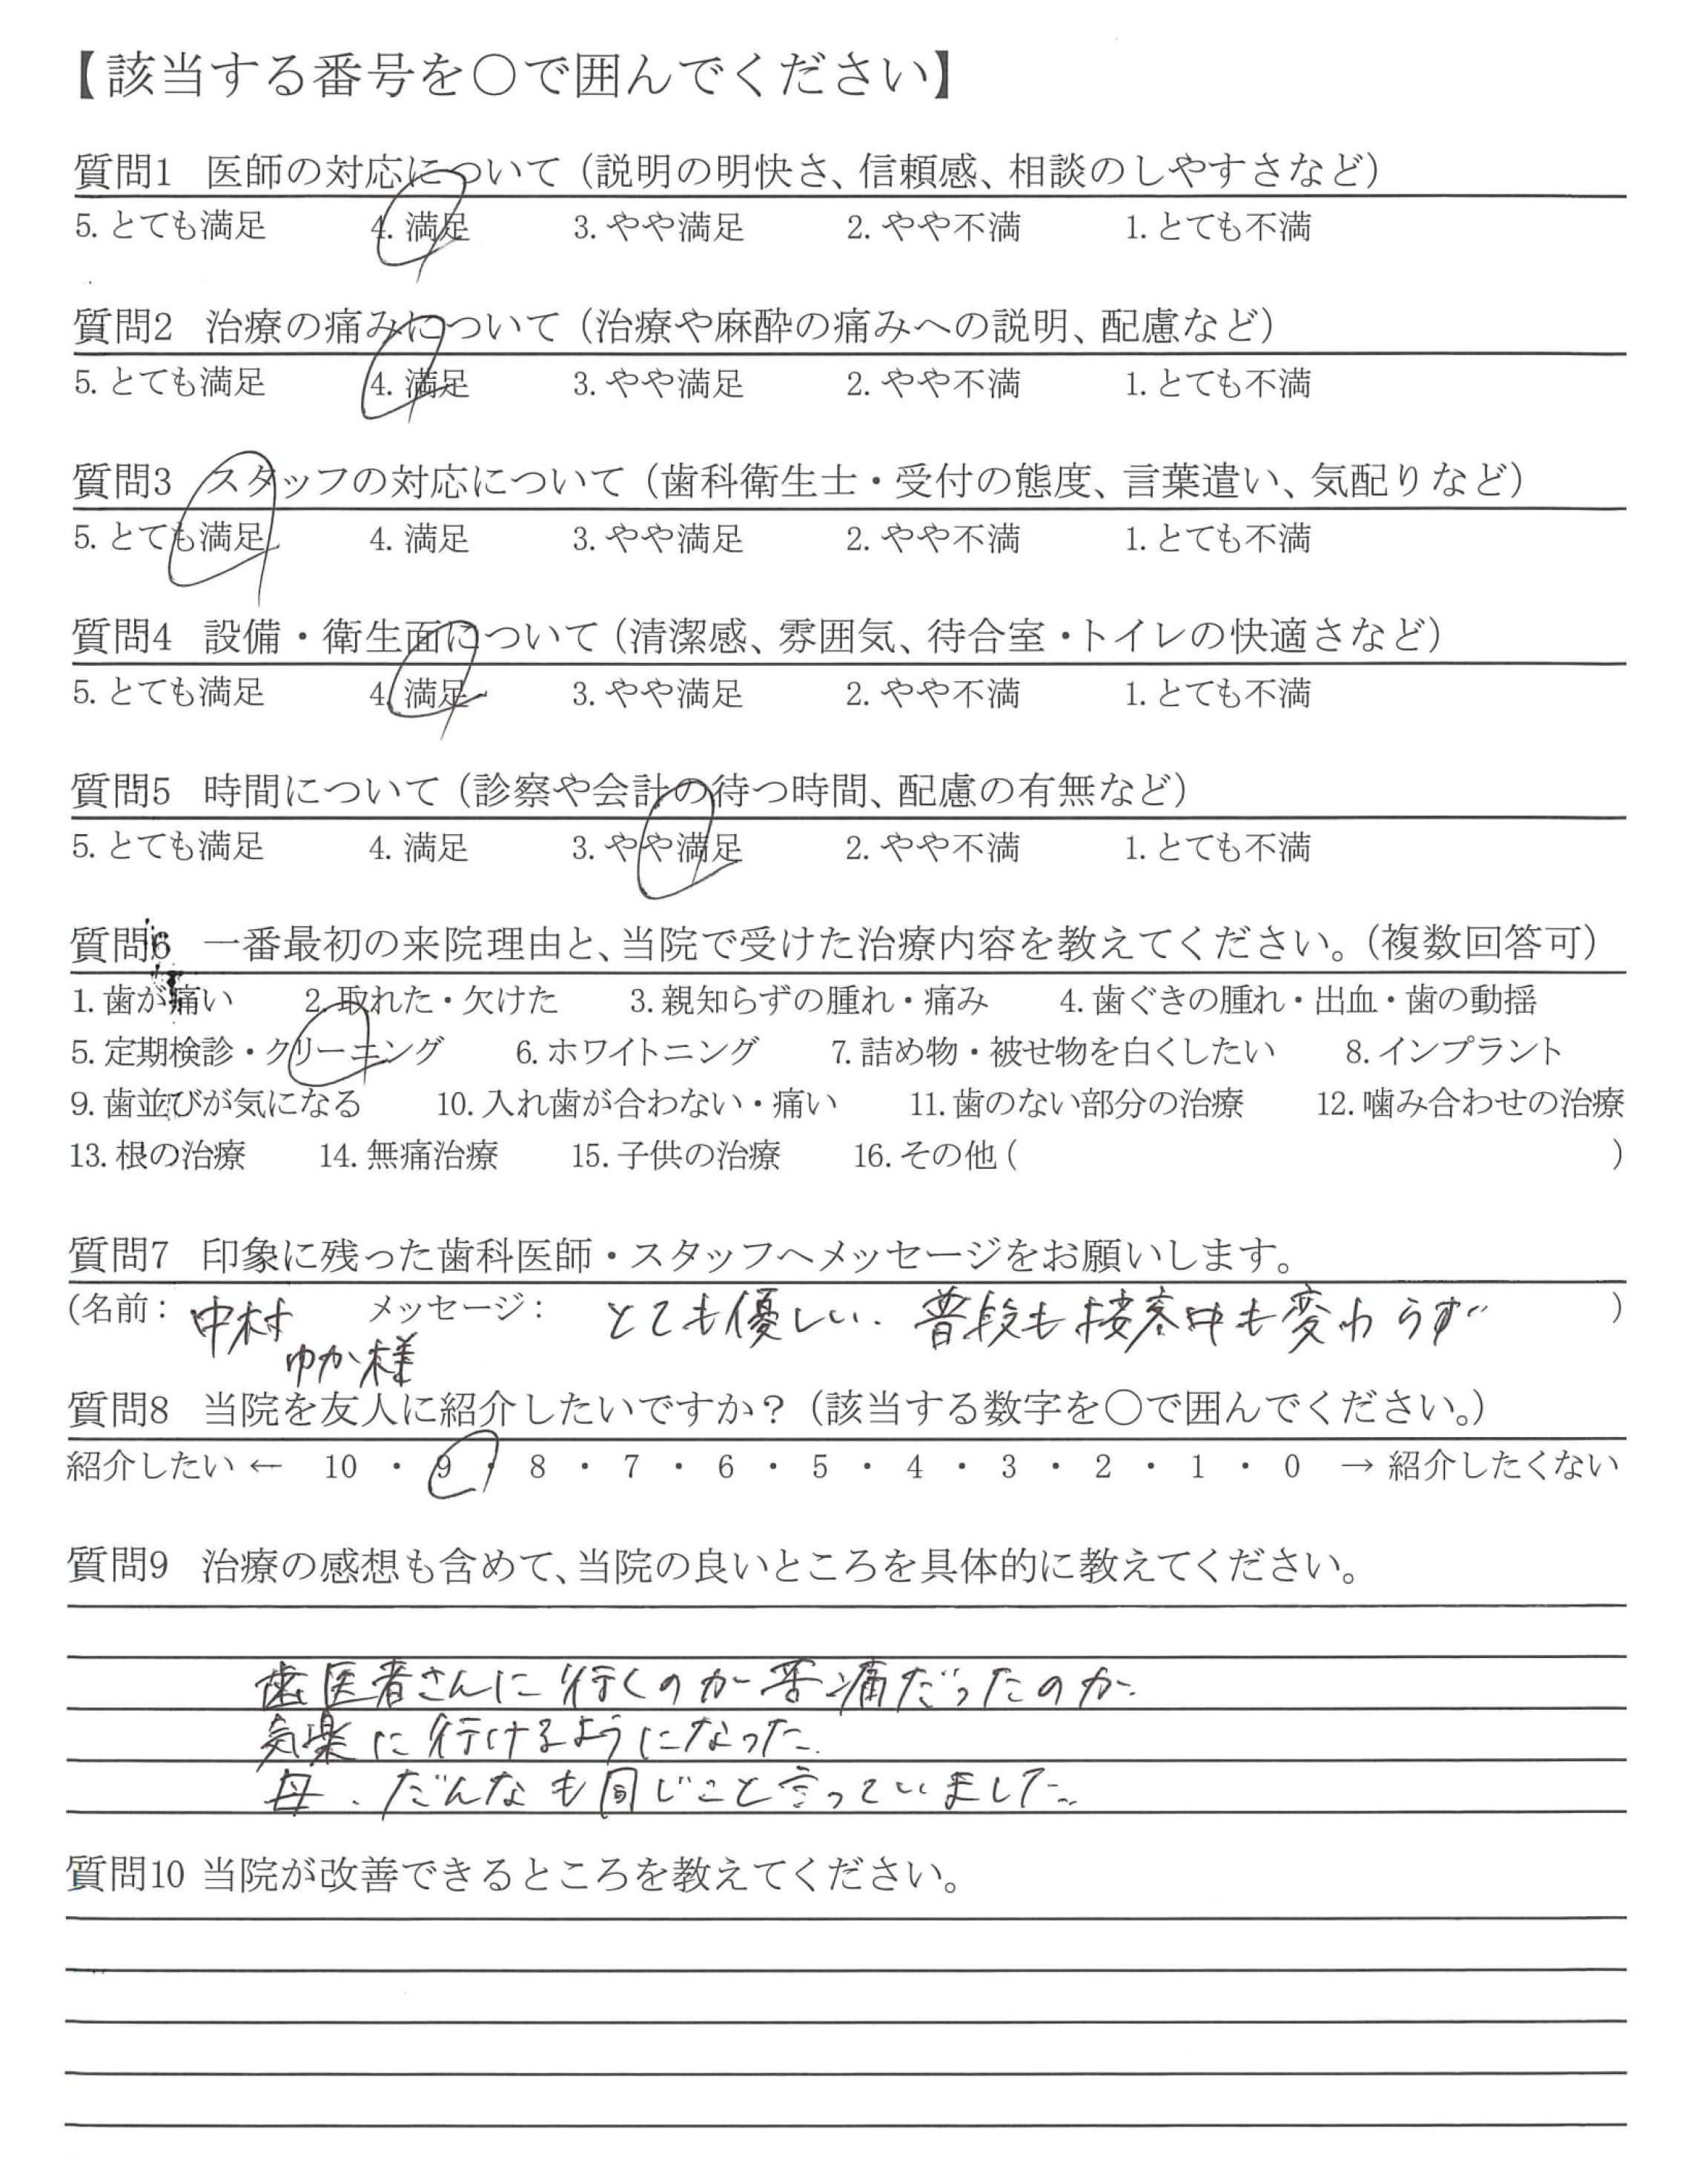 【該当する番号を○で囲んでください】
質問1 医師の対応について（説明の明快さ、信頼感、相談のしやすさなど）
5. とても満足 4. 満足 3. やや満足 2. やや不満 1. とても不満
質問2 治療の痛みについて（治療や麻酔の痛みへの説明、配慮など）
5. とても満足 4. 満足 3. やや満足 2. やや不満 1. とても不満
質問3 スタッフの対応について（歯科衛生士・受付の態度、言葉遣い、気配りなど）
5. とても満足 4. 満足 3. やや満足 2. やや不満 1. とても不満
質問4 設備・衛生面について（清潔感、雰囲気、待合室・トイレの快適さなど）
5. とても満足 4. 満足 3. やや満足 2. やや不満 1. とても不満
質問5 時間について（診察や会計の待つ時間、配慮の有無など）
5. とても満足 4. 満足 3. やや満足 2. やや不満 1. とても不満
質問6 一番最初の来院理由と、当院で受けた治療内容を教えてください。（複数回答可）
1. 歯が痛い 2. 取れた・欠けた 3. 親知らずの腫れ・痛み 4. 歯ぐきの腫れ・出血・歯の動揺
5. 定期検診・クリーニング 6. ホワイトニング 7. 詰め物・被せ物を白くしたい 8. インプラント
9. 歯並びが気になる 10. 入れ歯が合わない・痛い 11. 歯のない部分の治療 12. 噛み合わせの治療
13. 根の治療 14. 無痛治療 15. 子供の治療 16. その他（ ）
質問7 印象に残った歯科医師・スタッフへメッセージをお願いします。
（名前： 中村 メッセージ： とても優しい。普段も接客中も変わらず ）
ゆか様
質問8 当院を友人に紹介したいですか？（該当する数字を○で囲んでください。）
紹介したい ← 10 ・ 9 ・ 8 ・ 7 ・ 6 ・ 5 ・ 4 ・ 3 ・ 2 ・ 1 ・ 0 → 紹介したくない
質問9 治療の感想も含めて、当院の良いところを具体的に教えてください。
歯医者さんに行くのが苦痛だったのが、
気楽に行けるようになった。
母、だんなも同じこと言っていました。
質問10 当院が改善できるところを教えてください。